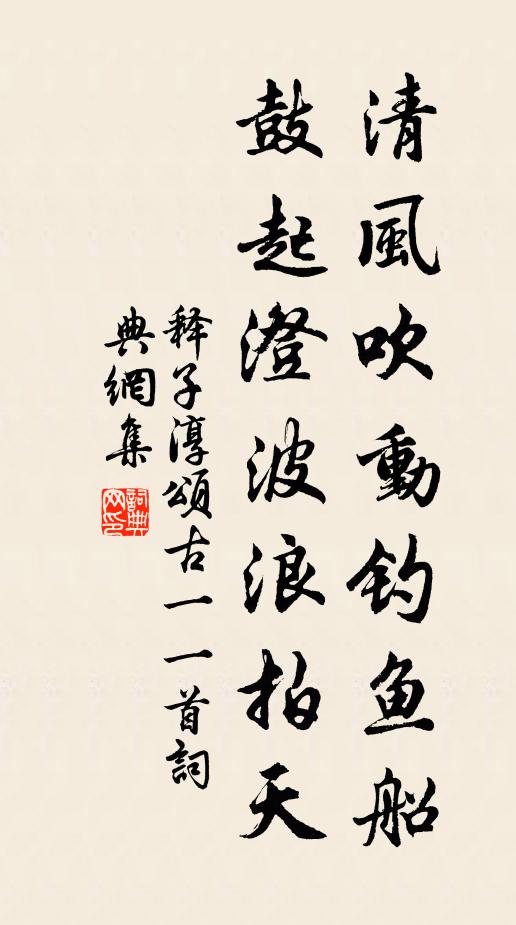 清風吹動釣鱼船
鼓起澄波浪拍天
释子淳頌古一一首詞
典網集
詞典网印